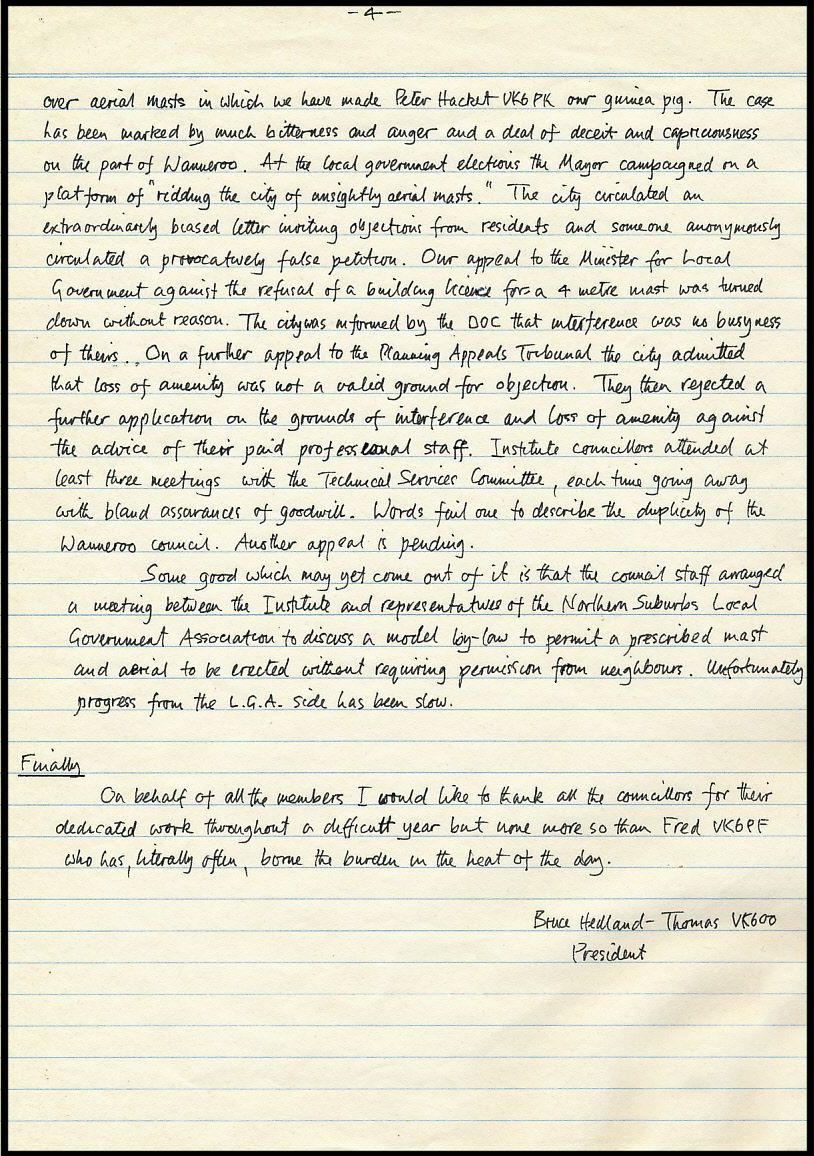 -4-
over aerial masts in which we have made Peter Hacket VK6PK our guinea pig. The case
has been marked by much bitterness and anger and a deal of deceit and capriciousness
on the part of Wanneroo. At the local government elections the Mayor campaigned on a
platform of "ridding the city of unsightly aerial masts." The city circulated an
extraordinarily biased letter inviting objections from residents and someone anonymously
circulated a provocatively false petition. Our appeal to the Minister for Local
Government against the refusal of a building licence for a 4 metre mast was turned
down without reason. The city was informed by the DOC that interference was no busyness
of theirs. On a further appeal to the Planning Appeals Tribunal the city admitted
that loss of amenity was not a valid ground for objection. They then rejected a
further application on the grounds of interference and loss of amenity against
the advice of their paid professional staff. Institute councillors attended at
least three meetings with the Technical Services Committee, each time going away
with bland assurances of goodwill. Words fail one to describe the duplicity of the
Wanneroo council. Another appeal is pending.
Some good which may yet come out of it is that the council staff arranged
a meeting between the Institute and representatives of the Northern Suburbs Local
Government Association to discuss a model by-law to permit a prescribed mast
and aerial to be erected without requiring permission from neighbours. Unfortunately
progress from the L.G.A. side has been slow.
Finally
On behalf of all the members I would like to thank all the councillors for their
dedicated work throughout a difficult year but none more so than Fred VK6PF
who has, literally often, borne the burden in the heat of the day.
Bruce Hedland-Thomas VK6OO
President